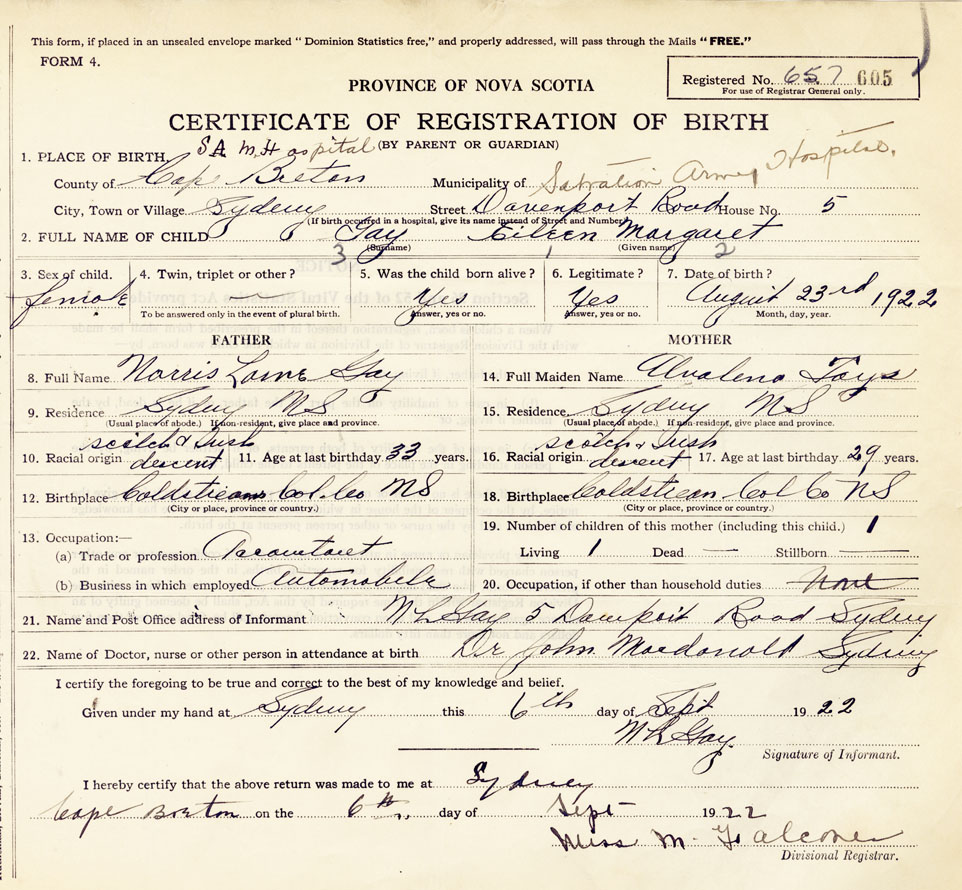 This form, if placed in an unsealed envelope marked "Dominion Statistics free," and properly addressed, will pass through the Mails "FREE."
FORM 4.
Registered No. 657 605
For use of Registrar General only.
PROVINCE OF NOVA SCOTIA
CERTIFICATE OF REGISTRATION OF BIRTH
(BY PARENT OR GUARDIAN)
1. PLACE OF BIRTH, S A M Hospital
County of Cape Breton Municipality of Salvation Army Hospital.
City, Town or Village Sydney Street Davenport Road House No. 5
(If birth occurred in a hospital, give its name instead of Street and Number)
2. FULL NAME OF CHILD Gay Eileen Margaret
(Surname) (Given name)
3 1 2
3. Sex of child. 4. Twin, triplet or other? 5. Was the child born alive? 6. Legitimate? 7. Date of birth?
female — Yes Yes August 23rd 1922
To be answered only in the event of plural birth. Answer, yes or no. Answer, yes or no. Month, day, year.
FATHER MOTHER
8. Full Name Norris Lorne Gay 14. Full Maiden Name Alvalena Tays
9. Residence Sydney NS 15. Residence, Sydney NS
(Usual place of abode.) If non-resident, give place and province. (Usual place of abode.) If non-resident, give place and province.
10. Racial origin scotch & Irish descent 11. Age at last birthday 33 years. 16. Racial origin scotch & Irish descent 17. Age at last birthday 29 years.
12. Birthplace Coldstream Col. Co NS 18. Birthplace Coldstream Col Co NS
(City or place, province or country.) (City or place, province or country.)
13. Occupation:— 19. Number of children of this mother (including this child.) 1
(a) Trade or profession Accountant Living 1 Dead — Stillborn —
(b) Business in which employed Automobile 20. Occupation, if other than household duties None
21. Name and Post Office address of Informant N L Gay 5 Davenport Road Sydney
22. Name of Doctor, nurse or other person in attendance at birth Dr John Macdonald Sydney
I certify the foregoing to be true and correct to the best of my knowledge and belief.
Given under my hand at Sydney this 6th day of Sept 1922
N L Gay.
Signature of Informant.
I hereby certify that the above return was made to me at Sydney
Cape Breton on the 6th day of Sept 1922
Miss M. Falconer
Divisional Registrar.